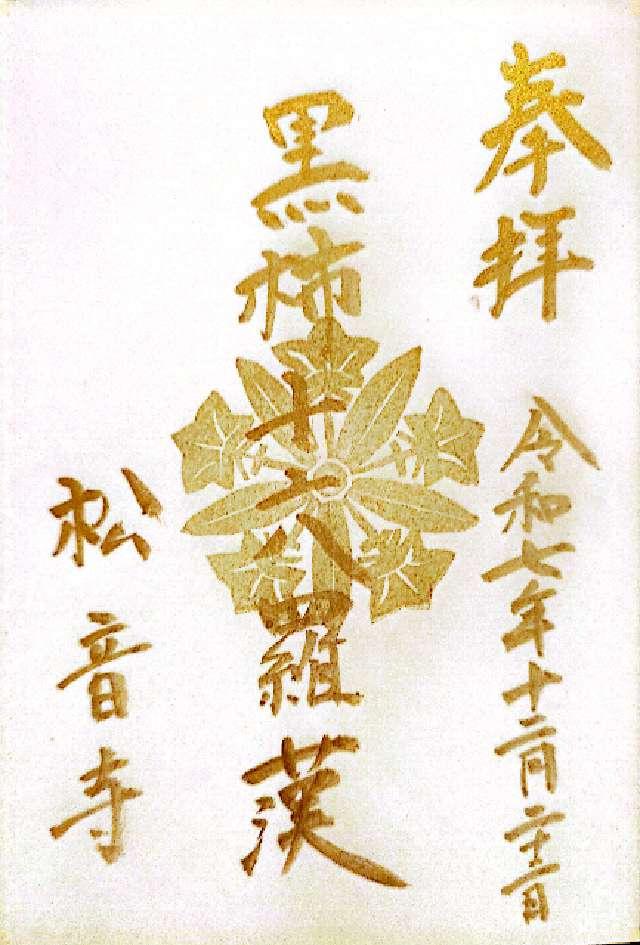 奉拝 令和七年十二月二十三日
黒柿十六羅漢
松音寺